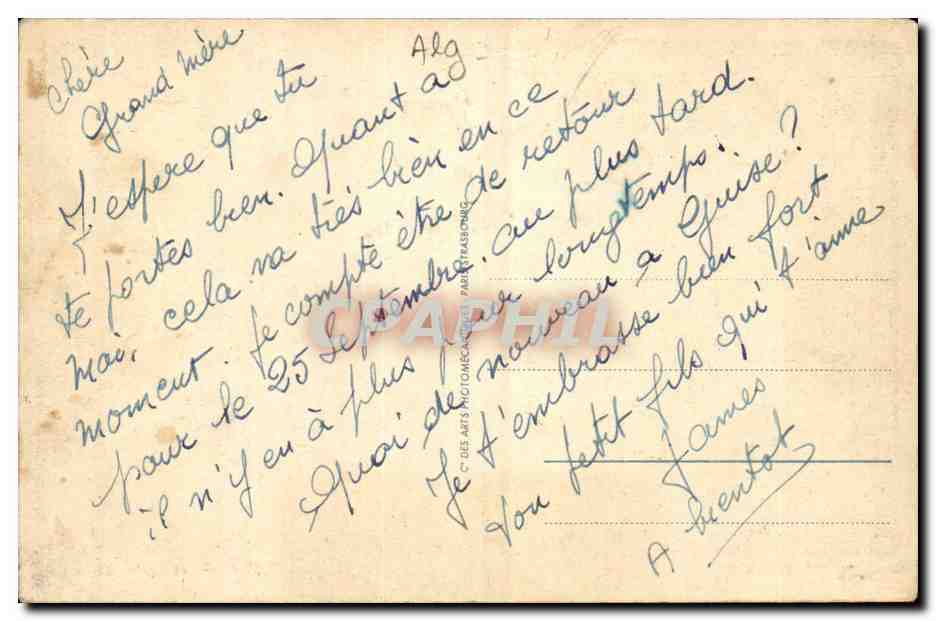 Alg
Chère
Grand Mère
J'espère que tu
te portes bien. Quant a
moi, cela va très bien en ce
moment. Je compte être de retour
pour le 25 Septembre. au plus tard.
il n'y en à plus pour longtemps.
Quoi de nouveau a Guise ?
Je t'embrasse bien fort
ton petit fils qui t'aime
James
A bientot
Cie DES ARTS PHOTOMECANIQUES PARIS-STRASBOURG
CPAPHIL